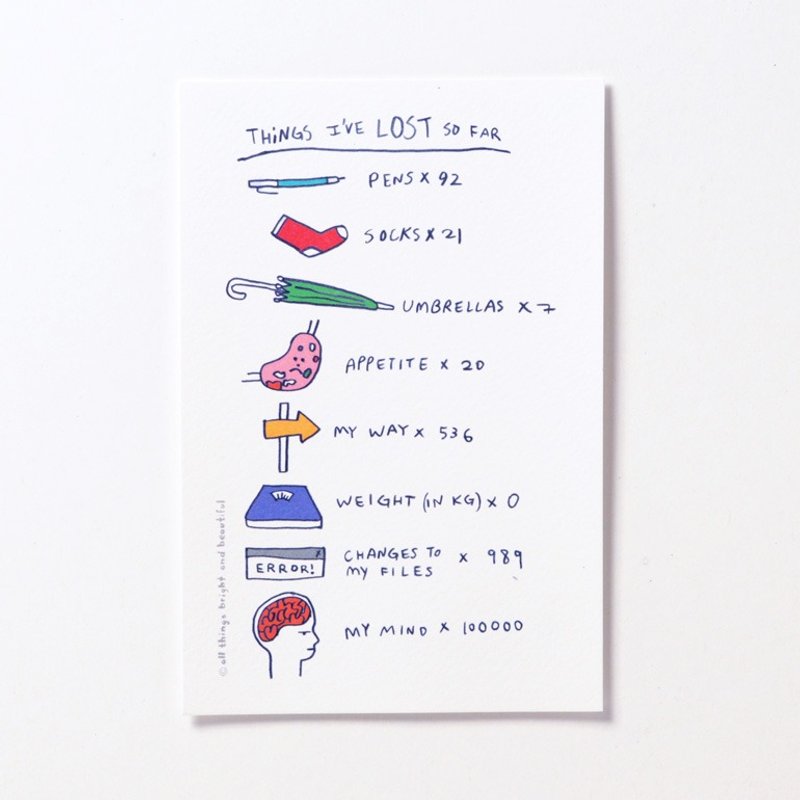 THINGS I'VE LOST SO FAR
PENS X 92
SOCKS X 21
UMBRELLAS X 7
APPETITE X 20
MY WAY X 536
WEIGHT (IN KG) X 0
ERROR!
CHANGES TO
MY FILES X 989
MY MIND X 100000
© all things bright and beautiful